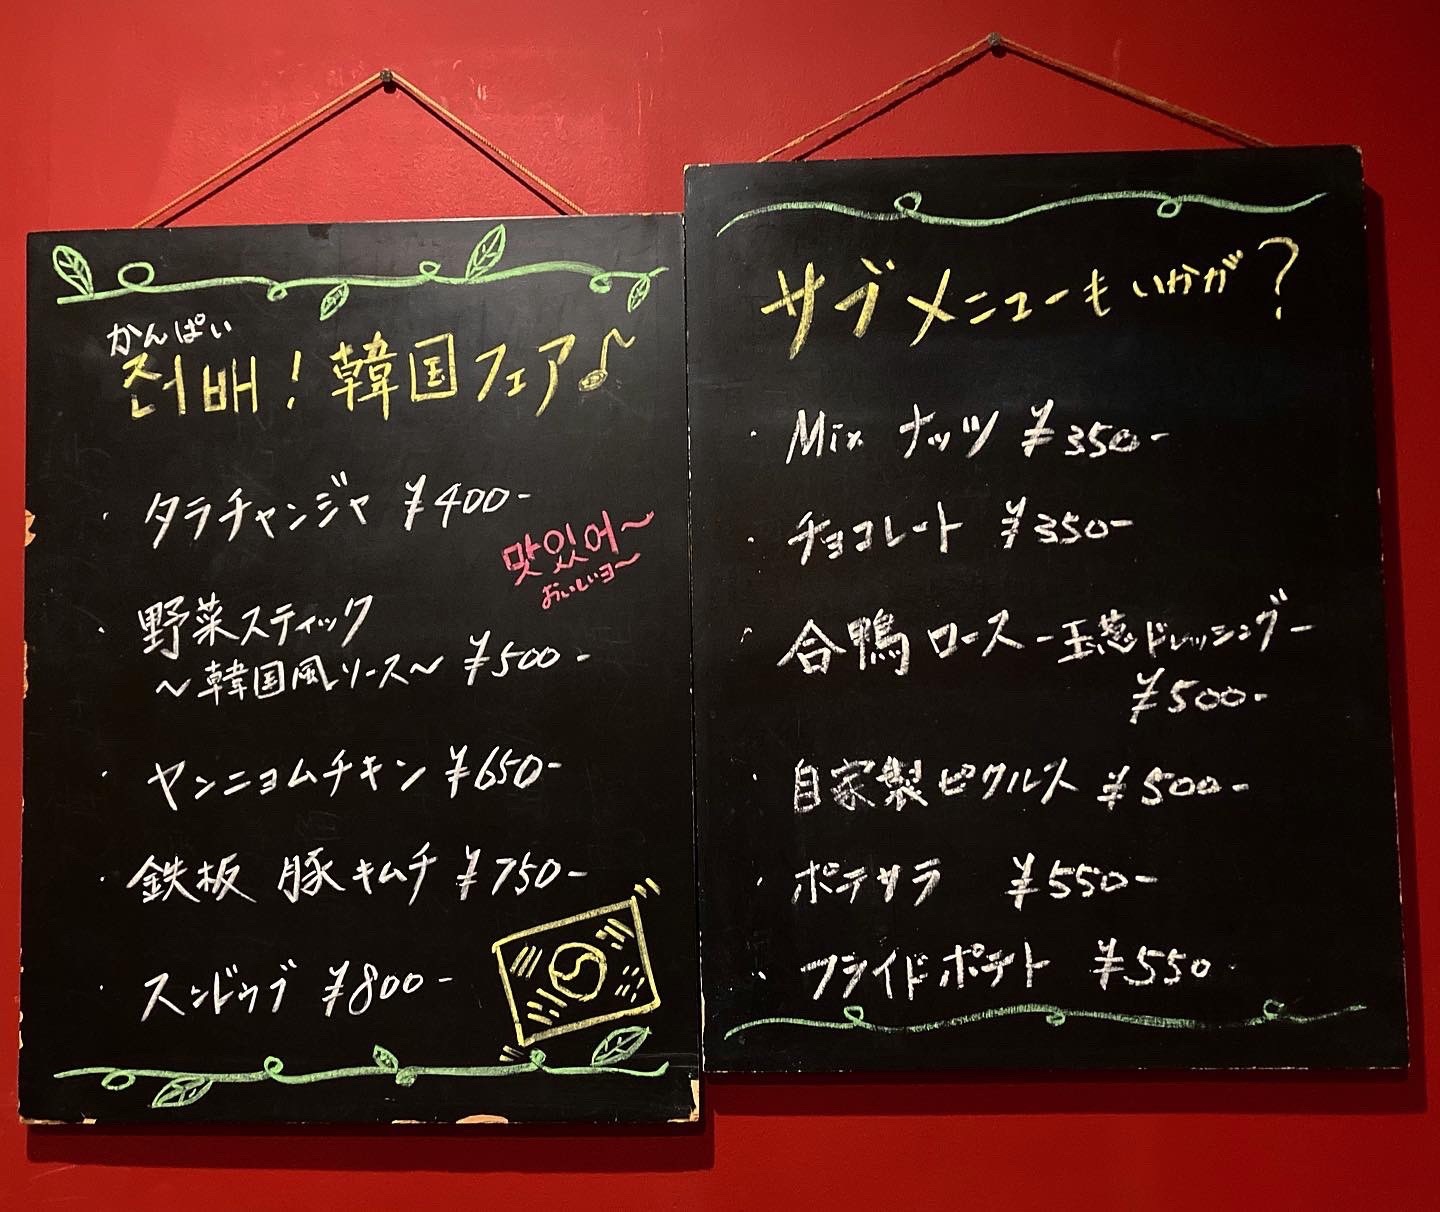 かんぱい
건배！韓国フェア♪
・タラチャンジャ ¥400-
맛있어～
おいしいヨ～
・野菜スティック
～韓国風ソース～ ¥500-
・ヤンニョムチキン ¥650-
・鉄板 豚キムチ ¥750-
・スンドゥブ ¥800-
サブメニューもいかが？
・Mix ナッツ ¥350-
・チョコレート ¥350-
・合鴨ロース-玉葱ドレッシング-
¥500-
・自家製ピクルス ¥500-
・ポテサラ ¥550-
・フライドポテト ¥550-